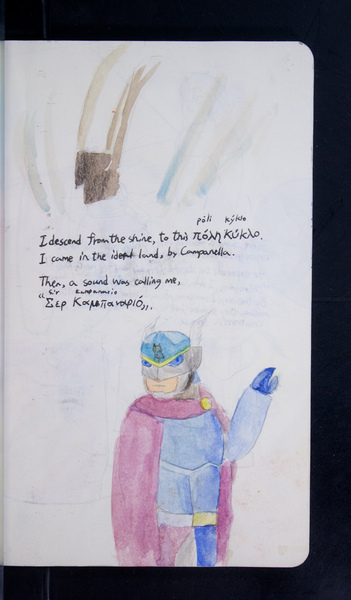 póli kýklo
I descend from the shine, to this πόλη κύκλο.
I came in the ideal land, by Campanella.
Then, a sound was calling me,
Sir
“Σερ Καμπαναριό„.